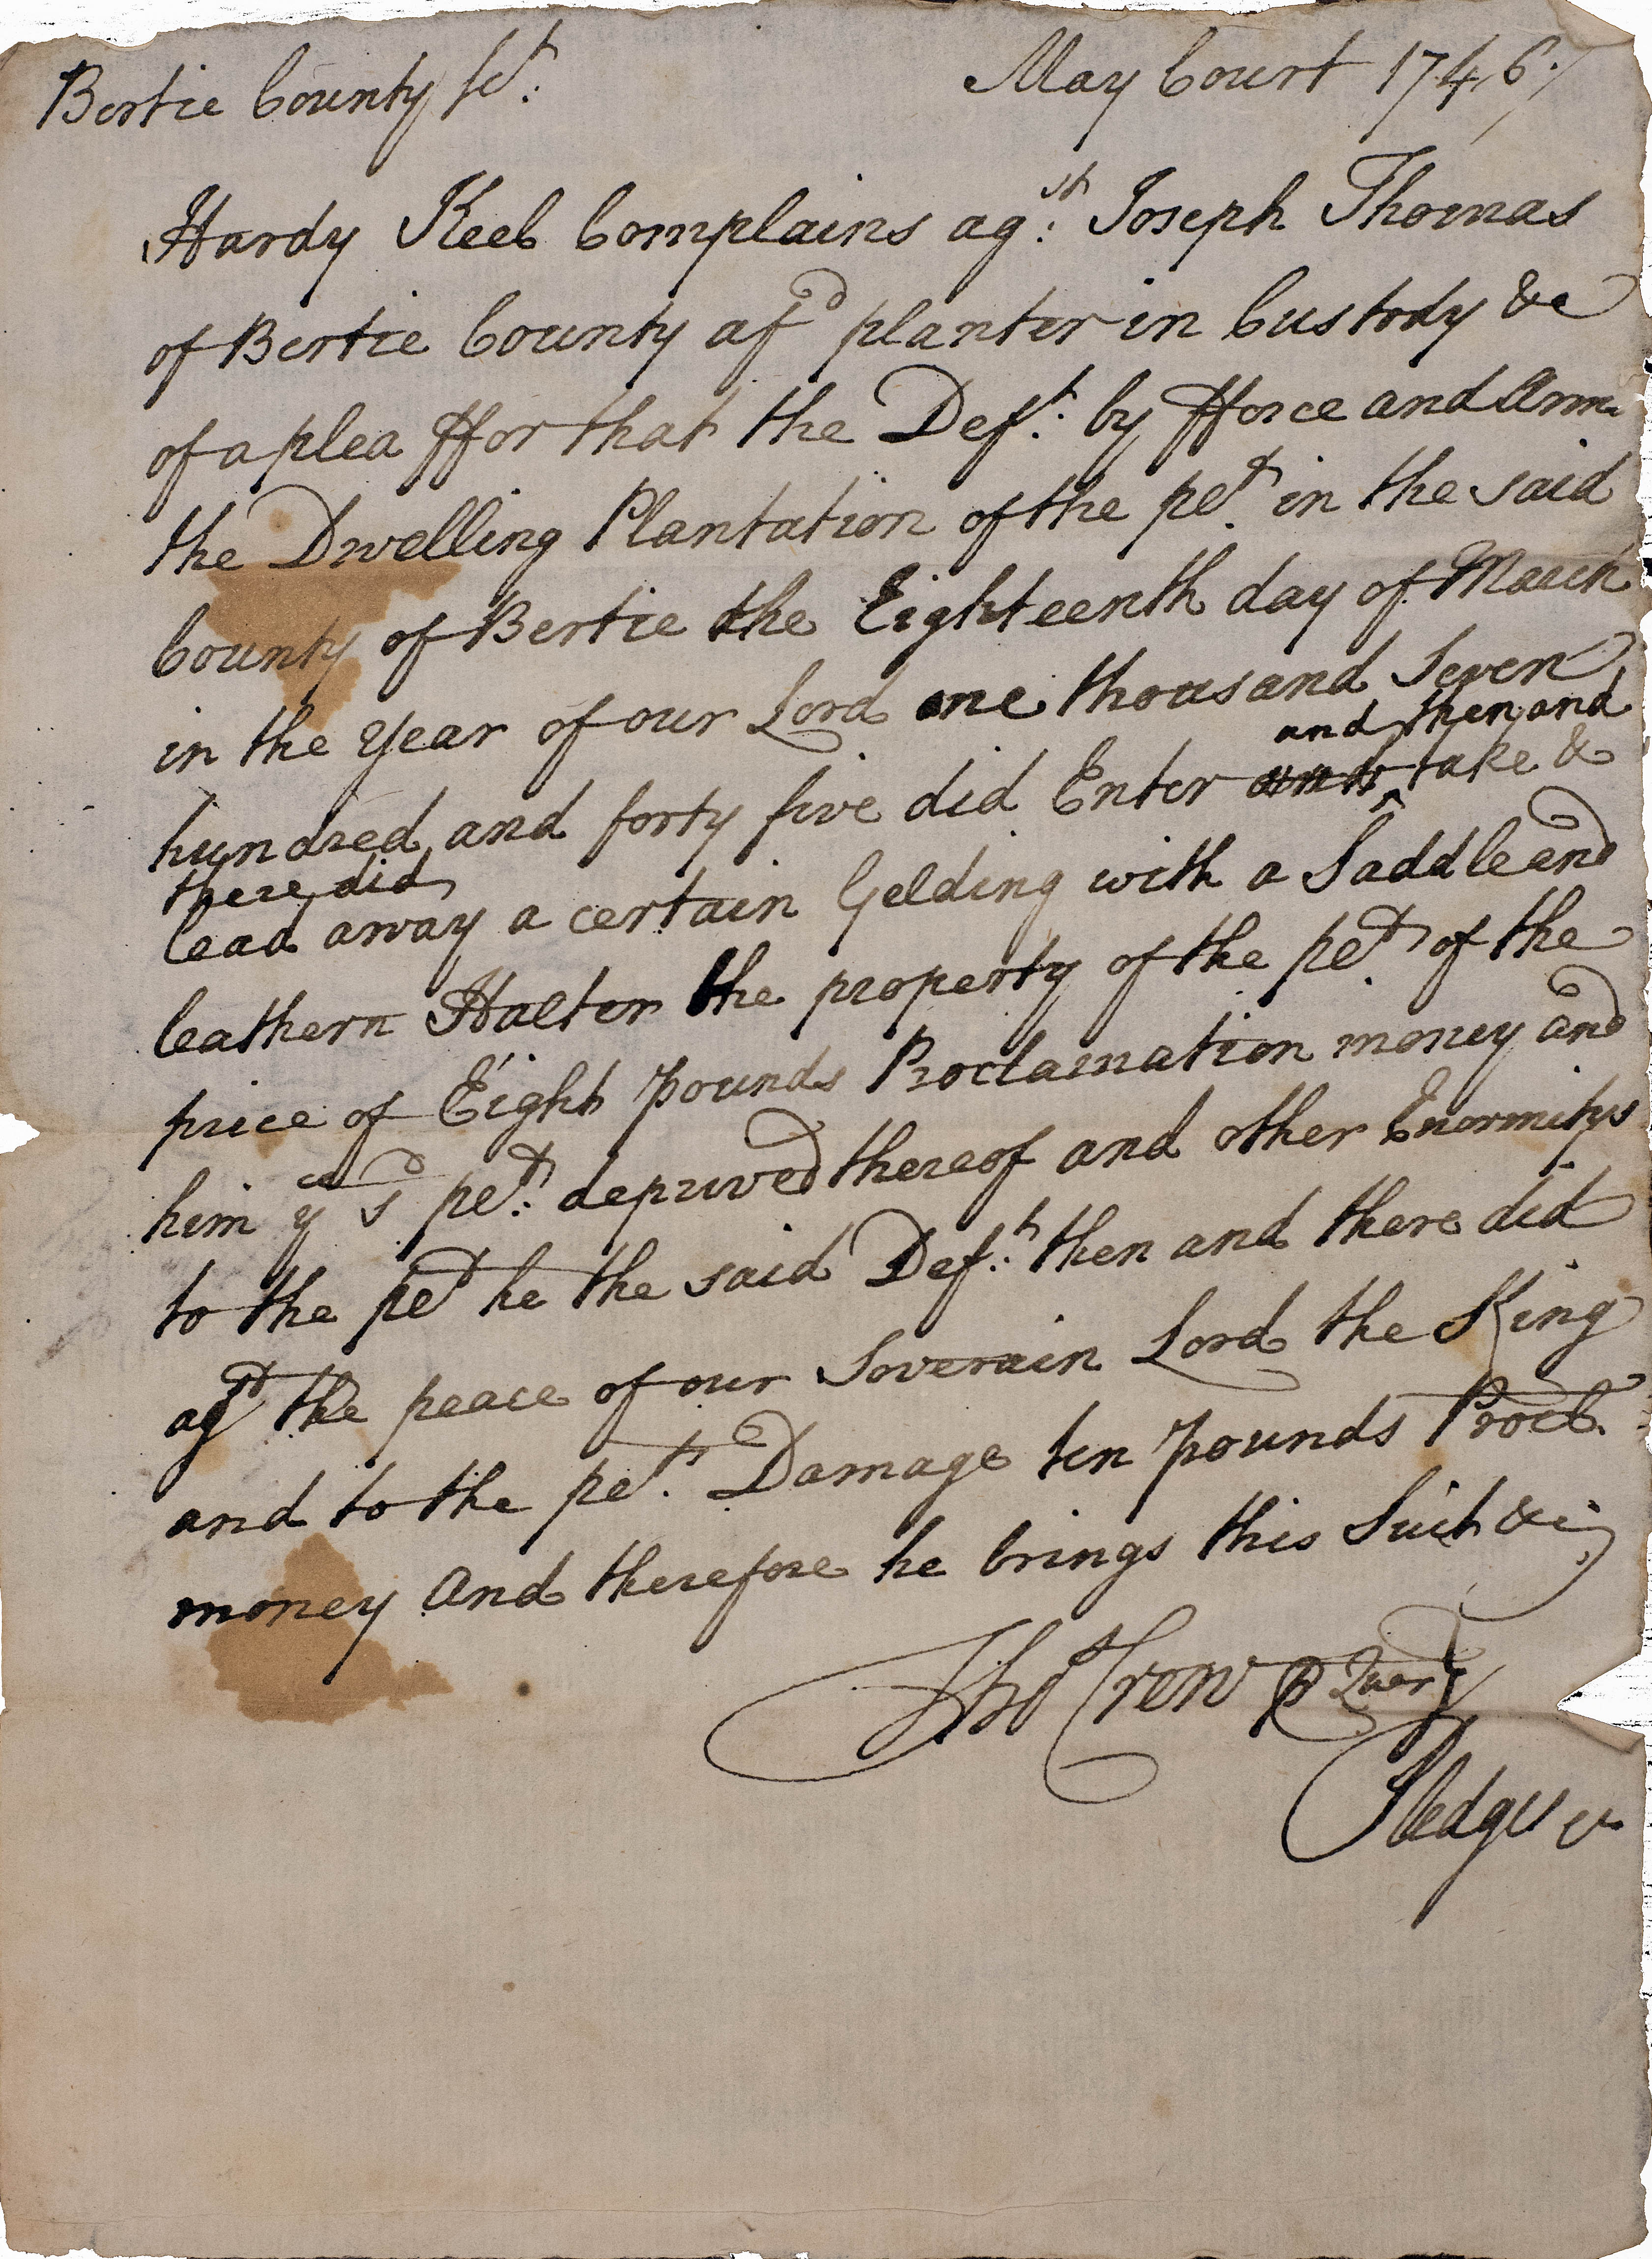 Bertie County Sct:
May Court 1746:/
Hardy Keel Complains agst: Joseph Thomas
of Bertie County afd planter in Custody &c
of a plea ffor that the Deft: by fforce and Arms
the Dwelling Plantation of the pet. in the said
County of Bertie the Eighteenth day of March
in the Year of our Lord one thousand Seven
and then and
hundred and forty five did Enter take &
there did
lead away a certain Gelding with a Saddle and
leathern Halter the property of the pet. of the
price of Eight pounds Proclamation money and
him ye sd pet: deprived thereof and other Enormitys
to the pet he the said Deft: then and there did
agt the peace of our Soverain Lord the King
and to the pet. Damage ten pounds Procl.
money And therefore he brings this Suit &c;
Tho Crew p Quer
Pledges &c